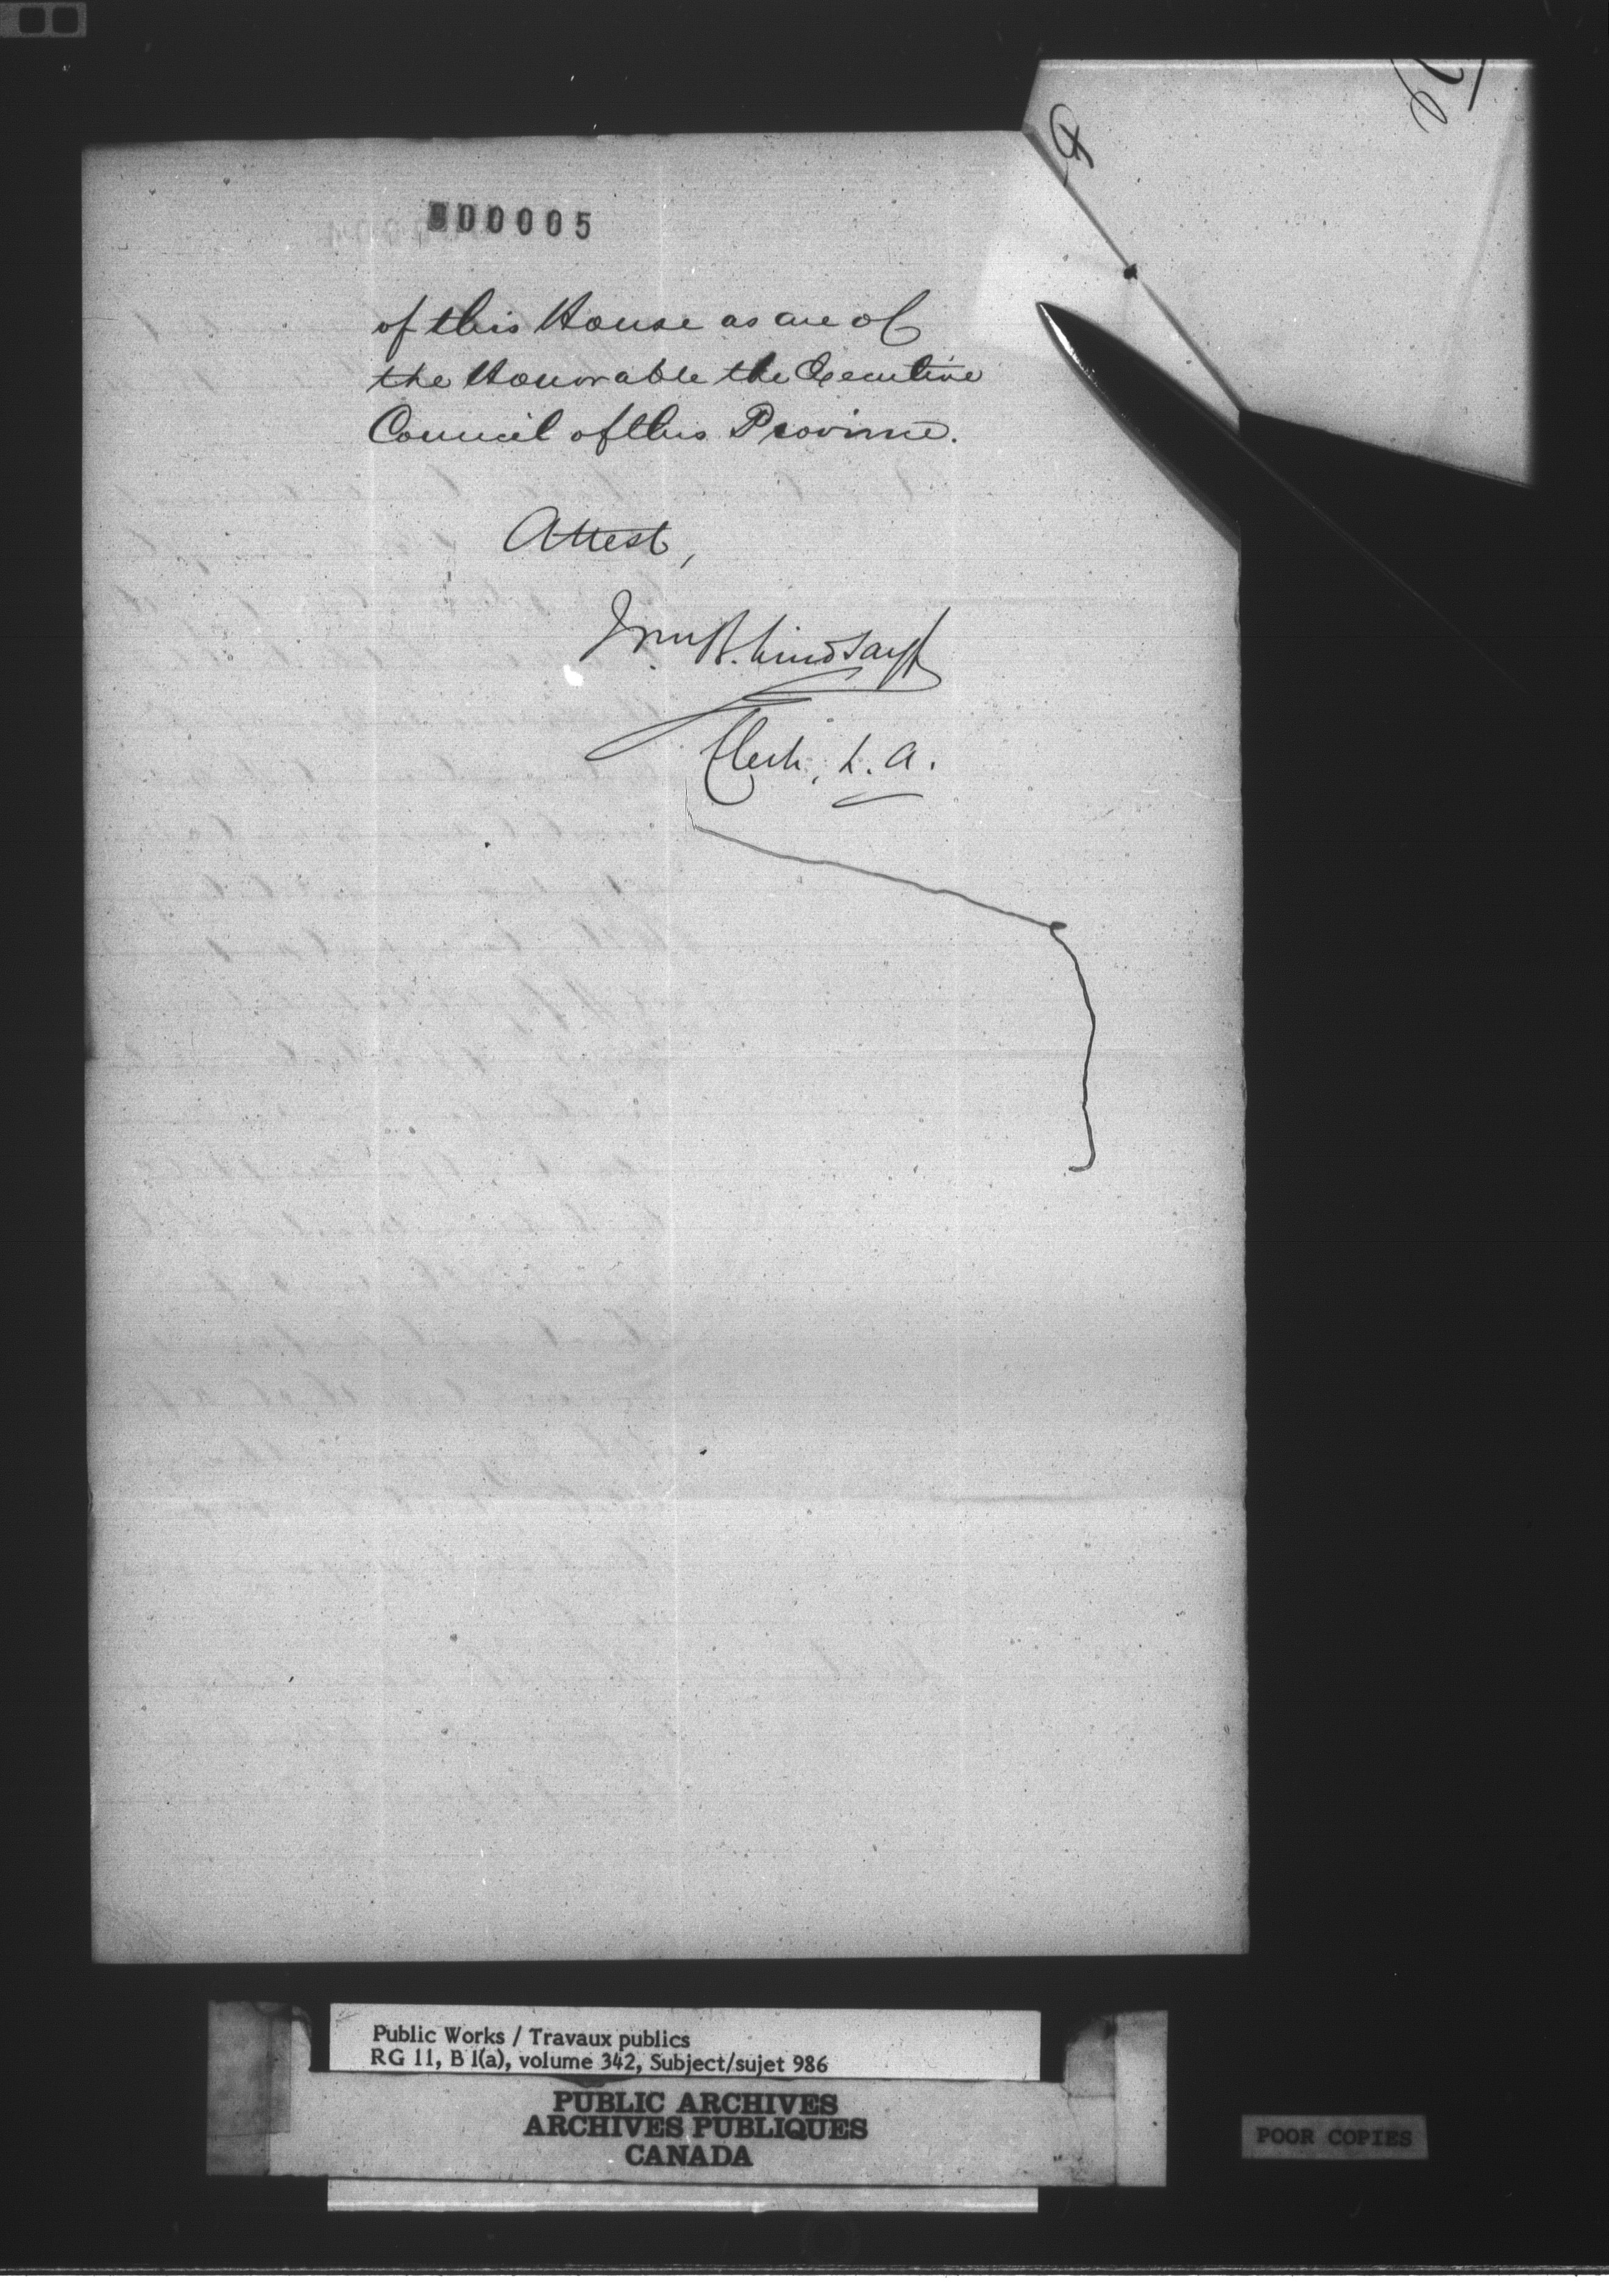 000005
of this House as are of
the Honorable the Executive
Council of this Province.
Attest,
Wm B. Lindsay
Clerk, L. A.
Public Works / Travaux publics
RG 11, B 1(a), volume 342, Subject/sujet 986
PUBLIC ARCHIVES
ARCHIVES PUBLIQUES
CANADA
POOR COPIES